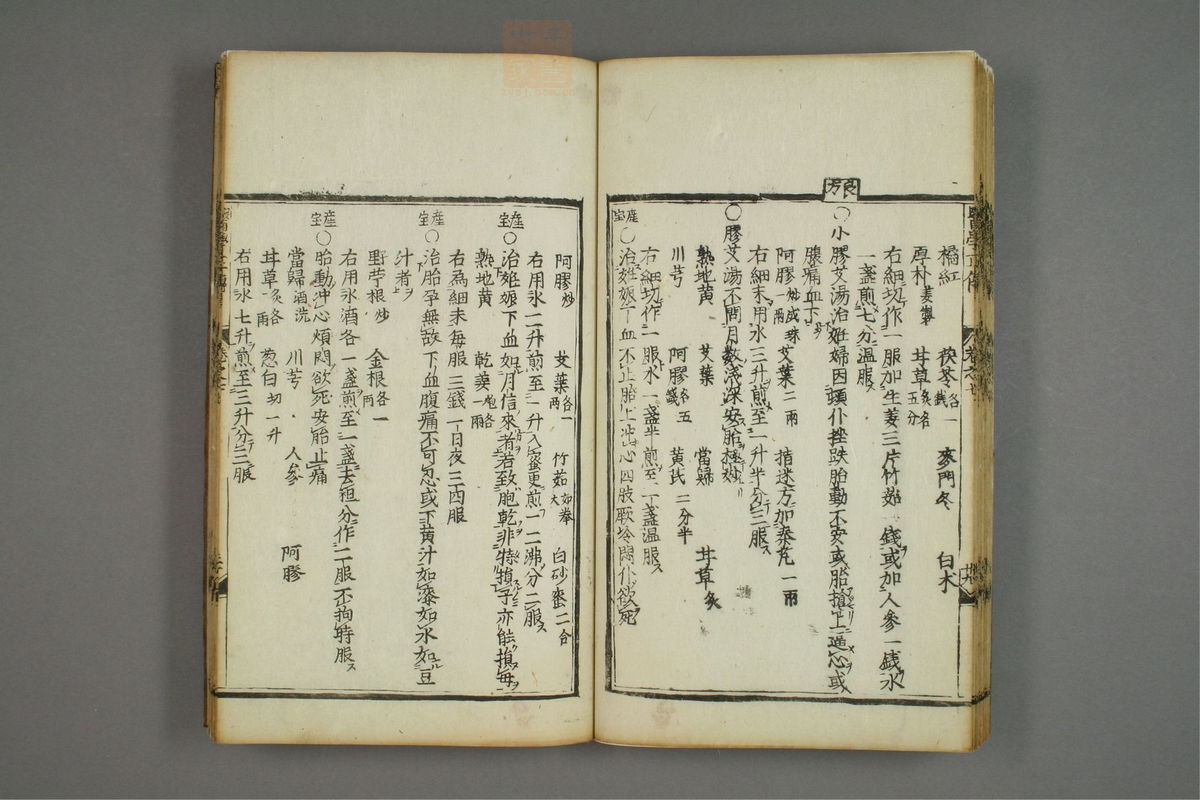 橘紅 茯苓各一錢 麥門冬 白朮
厚朴姜製 甘草炙各五分
右細切作一服加生姜三片竹茹一錢或加人參一錢水
一盞煎七分溫服
良方
○小膠艾湯治妊婦因頭仆挫跌胎動不安或胎搶上逼心或
腹痛血下
阿膠炒成珠一兩 艾葉二兩 指迷方加秦艽一兩
右細末用水三升煎至一升半分三服
○膠艾湯不問月數淺深安胎極妙
熟地黃 艾葉 當歸 甘草炙
川芎 阿膠各五錢 黃芪二分半
右細切作一服水一盞半煎至一盞溫服
産宝
○治姙娠下血不止胎上冲心四肢厥冷悶仆欲死
阿膠炒 艾葉各一兩 竹茹如拳大 白砂蜜二合
右用水二升煎至一升入蜜更煎一二沸分二服
産宝
○治姙娠下血如月信來者若致胞乾非特損子亦能損母
熟地黃 乾姜炮各一兩
右爲細末每服三錢一日夜三四服
産宝
○治胎孕無故下血腹痛不可忍或下黃汁如漆如水如豆
汁者
野苧根炒 金根各一兩
右用水酒各一盞煎至一盞去粗分作二服不拘時服
産宝
○胎動冲心煩悶欲死安胎止痛
當歸酒洗 川芎 人參 阿膠
甘草炙各一兩 葱白切一升
右用水七升煎至三升分三服